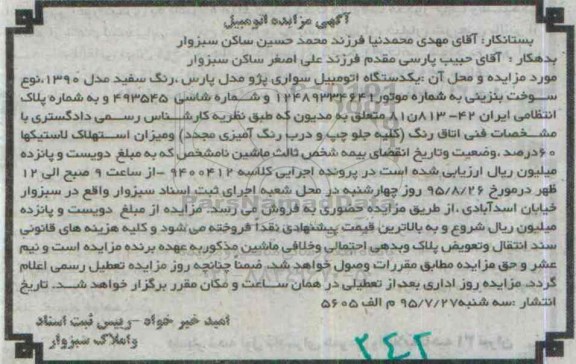 آگهی مزایده اتومبیل
بستانکار: آقای مهدی محمدنیا فرزند محمد حسین ساکن سبزوار
بدهکار : آقای حبیب پارسی مقدم فرزند علی اصغر ساکن سبزوار
مورد مزایده و محل آن :یکدستگاه اتومبیل سواری پژو مدل پارس ،رنگ سفید مدل ۱۳۹۰،نوع
سوخت بنزینی به شماره موتور و شماره شاسی ۴۹۳۵۴۵ و به شماره پلاک
انتظامی ایران ۴۲- ۸۱۳ن۸۱ متعلق به مدیون که طبق نظریه کارشناس رسمی دادگستری با
مشخصات فنی اتاق رنگ (کلیه جلو چپ و درب رنگ آمیزی مجدد) ومیزان استهلاک لاستیکها
۶۰درصد .وضعیت وتاریخ انقضای بیمه شخص ثالث ماشین نامشخص که به مبلغ دویست و پانزده
میلیون ریال ارزیابی شده است در پرونده اجرایی کلاسه ۹۴۰۰۴۱۲ -از ساعت ۹ صبح الی ۱۲
ظهر درمورخ ۹۵/۸/۲۶ روز چهارشنبه در محل شعبه اجرای ثبت اسناد سبزوار واقع در سبزوار
خیابان اسدآبادی ،از طریق مزایده حضوری به فروش می رسد. مزایده از مبلغ دویست و پانزده
میلیون ریال شروع و به بالاترین قیمت پیشنهادی نقداً فروخته می شود و کلیه هزینه های قانونی
سند انتقال وتعویض پلاک وبدهی احتمالی وخلافی ماشین مذکوربه عهده برنده مزایده است و نیم
عشر و حق مزایده مطابق مقررات وصول خواهد شد. ضمنا چنانچه روز مزایده تعطیل رسمی اعلام
گردد. مزایده روز اداری بعد از تعطیلی در همان ساعت و مکان مقرر برگزار خواهد شد. تاریخ
انتشار :سه شنبه۹۵/۷/۲۷ م الف ۵۶۰۵
امید خیر خواه -رییس ثبت اسناد
واملاک سبزوار
ParsNamadData